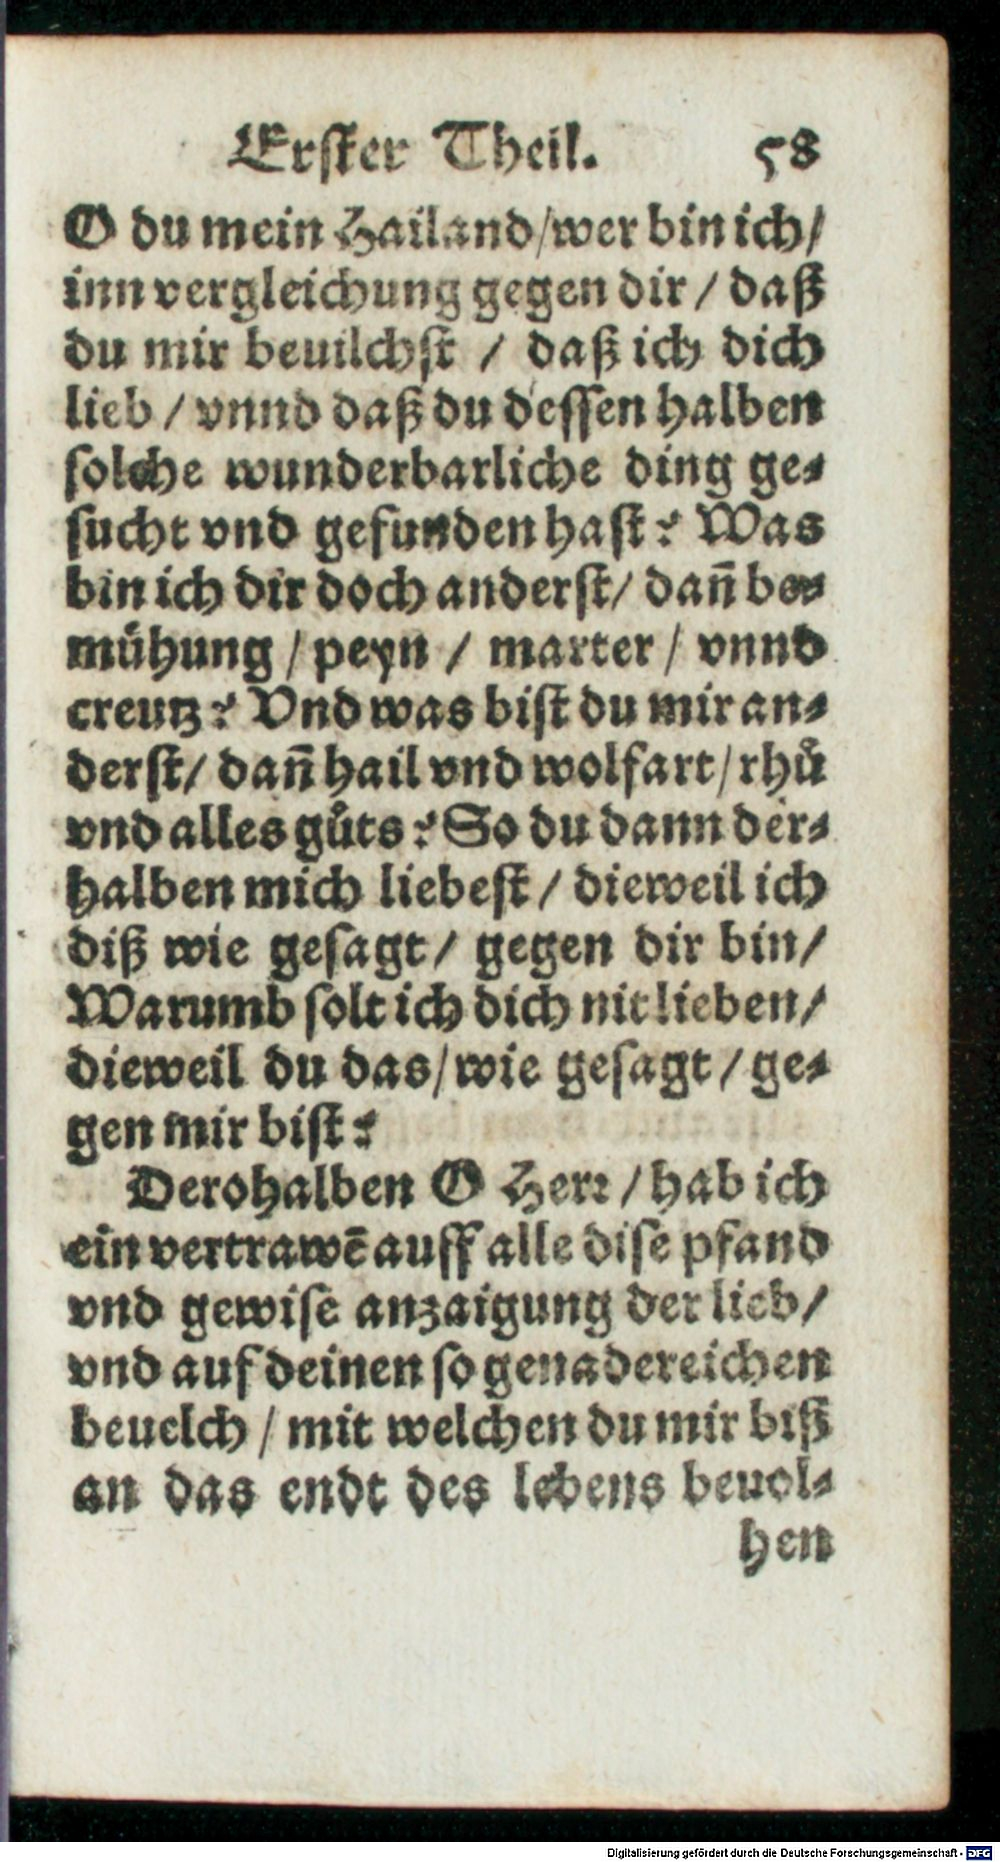 Erster Theil. 58
O du mein Hailand/wer bin ich/
inn vergleichung gegen dir / daß
du mir beuilchst / daß ich dich
lieb / vnnd daß du dessen halben
solche wunderbarliche ding ge-
sucht vnd gefunden hast? Was
bin ich dir doch anderst/ dañ be-
mühung / peyn / marter / vnnd
creutz? Vnd was bist du mir an-
derst/ dañ hail vnd wolfart/rhuͦ
vnd alles guͦts? So du dann der-
halben mich liebest / dieweil ich
diß wie gesagt/ gegen dir bin/
Warumb solt ich dich nit lieben/
dieweil du das/wie gesagt / ge-
gen mir bist?
Derohalben O Herr / hab ich
ein vertrawẽ auff alle dise pfand
vnd gewise anzaigung der lieb/
vnd auf deinen so genadereichen
beuelch / mit welchen du mir biß
an das endt des lebens beuol-
hen
Digitalisierung gefördert durch die Deutsche Forschungsgemeinschaft - DFG